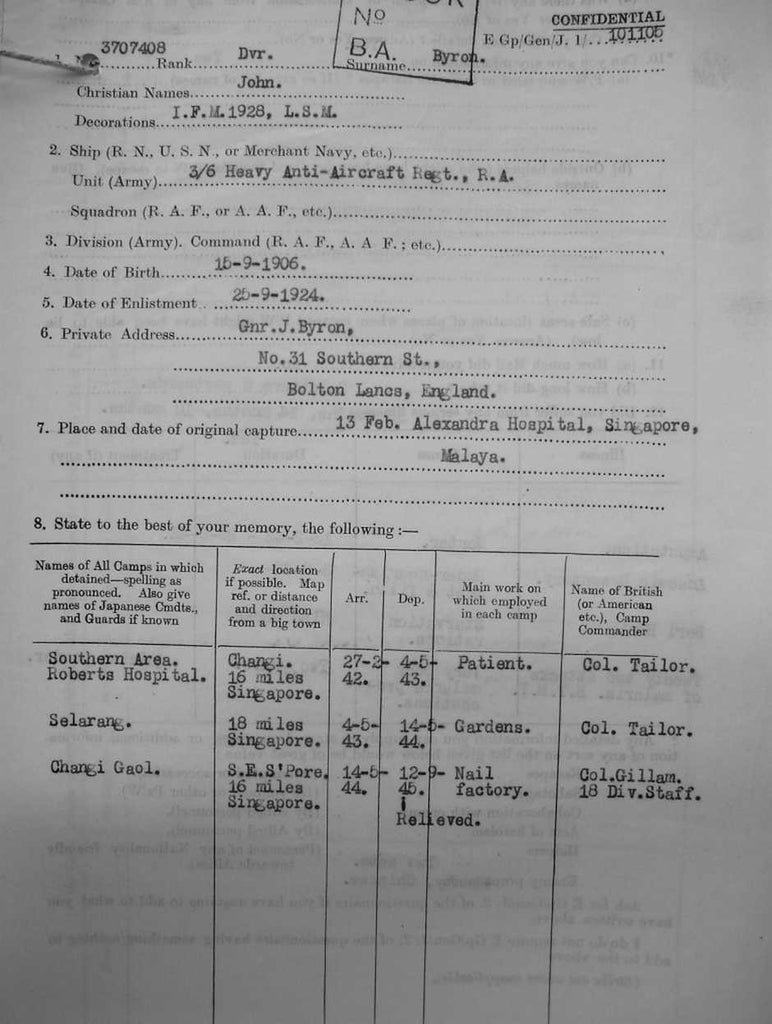 No
B.A.
CONFIDENTIAL
E Gp/Gen/J. 1/...101105
1. 3707408 Rank Dvr. Surname Byron.
Christian Names John.
Decorations I.F.M.1928, L.S.M.
2. Ship (R. N., U. S. N., or Merchant Navy, etc.)
Unit (Army) 3/6 Heavy Anti-Aircraft Regt., R.A.
Squadron (R. A. F., or A. A. F., etc.)
3. Division (Army). Command (R. A. F., A. A F. ; etc.)
4. Date of Birth -9-1906.
5. Date of Enlistment -9-1924.
6. Private Address Gnr.J.Byron,
No.31 Southern St.,
Bolton Lancs, England.
7. Place and date of original capture 13 Feb. Alexandra Hospital, Singapore,
Malaya.
8. State to the best of your memory, the following :—
Names of All Camps in which detained—spelling as pronounced. Also give names of Japanese Cmdts., and Guards if known
Exact location if possible. Map ref. or distance and direction from a big town
Arr.
Dep.
Main work on which employed in each camp
Name of British (or American etc.), Camp Commander
Southern Area. Changi. 27-2- 4-5- Patient. Col. Tailor.
Roberts Hospital. 16 miles 42. 43.
Singapore.
Selarang. 18 miles 4-5- 14-5- Gardens. Col. Tailor.
Singapore. 43. 44.
Changi Gaol. S.E.S'Pore. 14-5- 12-9- Nail Col.Gillam.
16 miles 44. 45. factory. 18 Div.Staff.
Singapore.
Relieved.